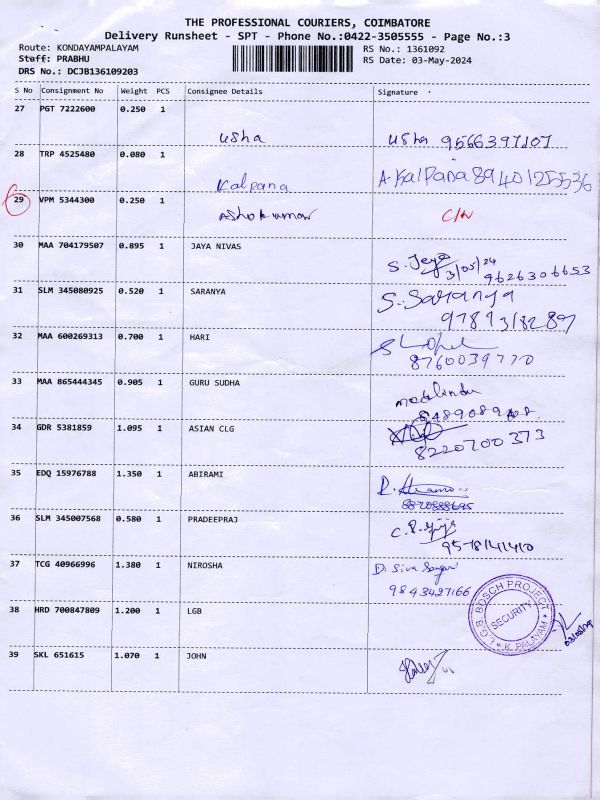 THE PROFESSIONAL COURIERS, COIMBATORE
Delivery Runsheet - SPT - Phone No.:0422-3505555 - Page No.:3
Route: KONDAYAMPALAYAM
RS No.: 1361092
Staff: PRABHU
RS Date: 03-May-2024
DRS No.: DCJB136109203
S No Consignment No Weight PCS Consignee Details Signature
27 PGT 7222600 0.250 1
Usha Usha 9566397107
28 TRP 4525480 0.080 1
Kalpana A-Kalpana 8940125536
29 VPM 5344300 0.250 1
Ashokumar C/N
30 MAA 704179507 0.895 1 JAYA NIVAS
S. Jeya 3/05/24
9626306653
31 SLM 345080925 0.520 1 SARANYA S. Saranya
9789318289
32 MAA 600269313 0.700 1 HARI
8760039770
33 MAA 865444345 0.905 1 GURU SUDHA
34 GDR 5381859 1.095 1 ASIAN CLG
8220700373
35 EDQ 15976788 1.350 1 ABIRAMI
36 SLM 345007568 0.580 1 PRADEEPRAJ
9578141410
37 TCG 40966996 1.380 1 NIROSHA D. Siva
9843427166
38 HRD 700847809 1.200 1 LGB
L.G.B. BOSCH PROJECT
SECURITY
K. PALAYAM
39 SKL 651615 1.070 1 JOHN